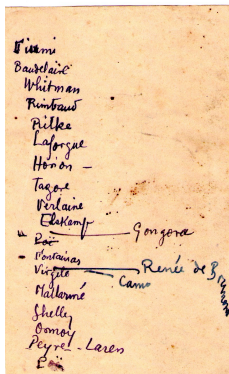 Baudelaire
Whitman
Rimbaud
Rilke
Laforgue
Tagore
Verlaine
Elskamp
Gongora
Poë
Virgile
Renée de
Camo
Mallarmé
Shelley
Ormoy
Peyré - Lares
Poë